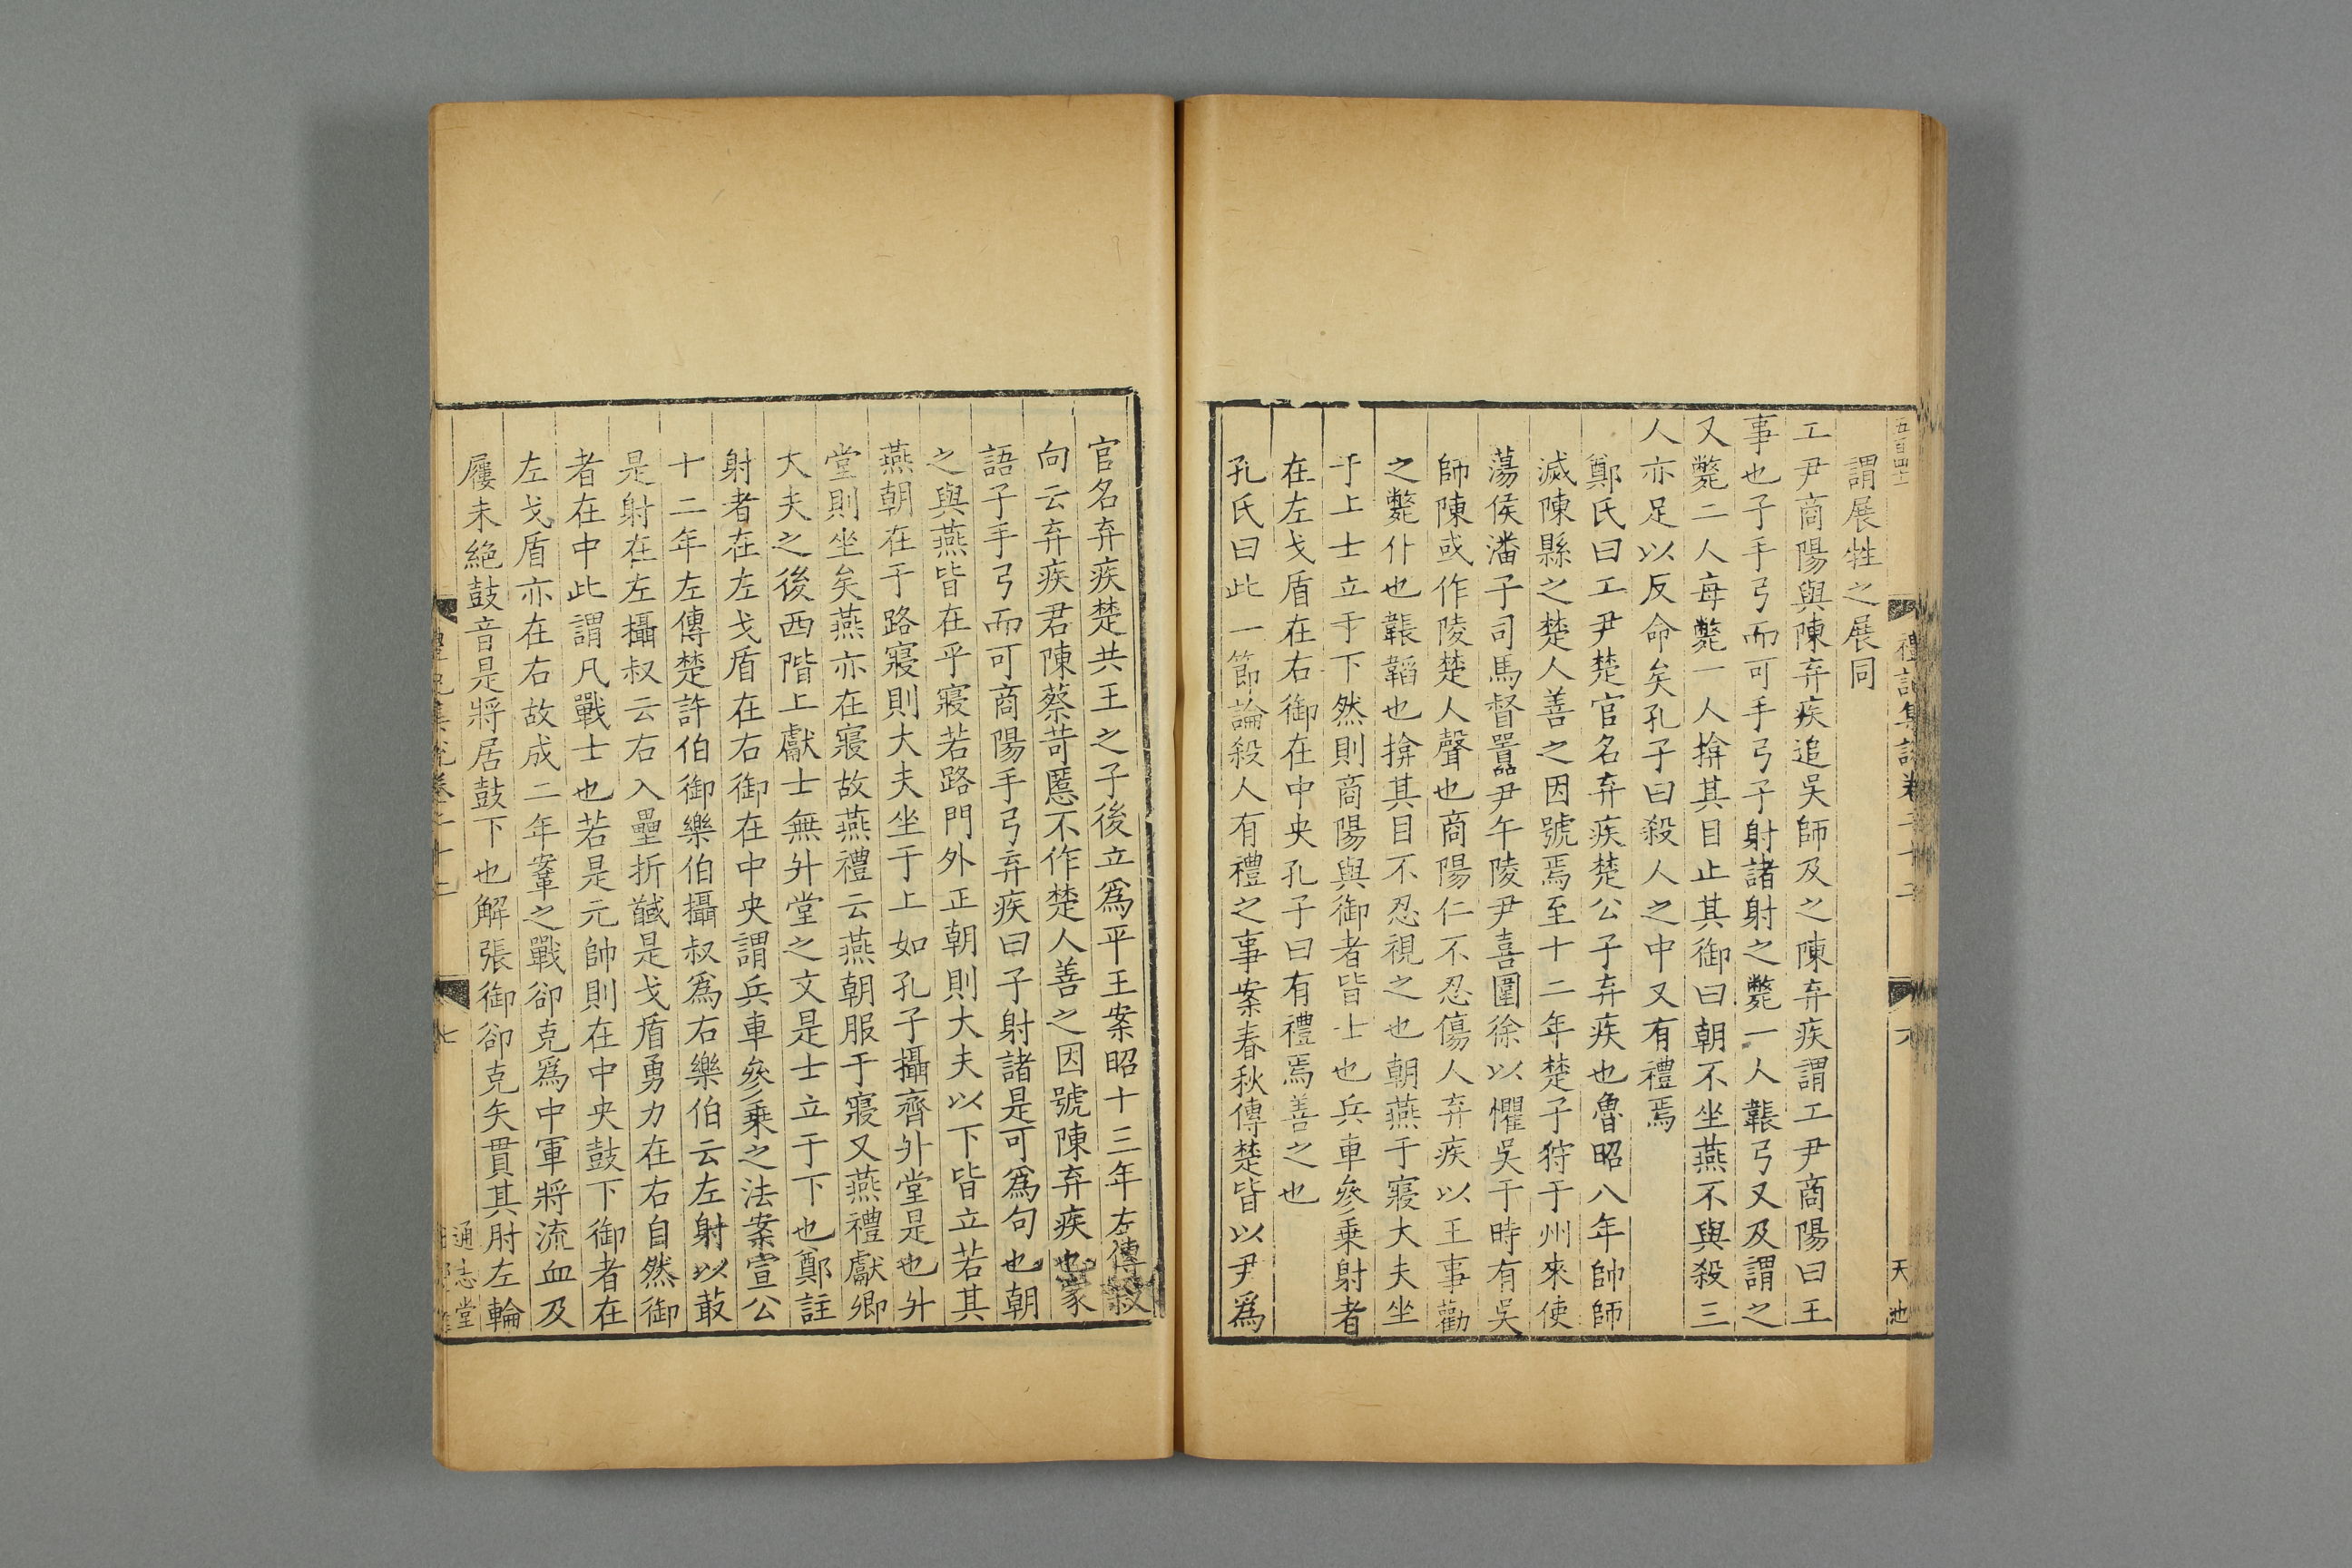 五百四十二
禮記集說卷二十二
天池
謂展牲之展同
工尹商陽與陳弃疾追吳師及之陳弃疾謂工尹商陽曰王
事也子手弓而可手弓子射諸射之斃一人韔弓又及謂之
又斃二人每斃一人揜其目止其御曰朝不坐燕不與殺三
人亦足以反命矣孔子曰殺人之中又有禮焉
鄭氏曰工尹楚官名弃疾楚公子弃疾也魯昭八年帥師
滅陳縣之楚人善之因號焉至十二年楚子狩于州來使
蕩侯潘子司馬督嚻尹午陵尹喜圍徐以懼吳于時有吳
師陳或作陵楚人聲也商陽仁不忍傷人弃疾以王事勸
之斃仆也韔韜也揜其目不忍視之也朝燕于寢大夫坐
于上士立于下然則商陽與御者皆士也兵車參乗射者
在左戈盾在右御在中央孔子曰有禮焉善之也
孔氏曰此一節論殺人有禮之事案春秋傳楚皆以尹爲
官名弃疾楚共王之子後立爲平王案昭十三年左傳叔
向云弃疾君陳蔡苛慝不作楚人善之因號陳弃疾也家
語子手弓而可商陽手弓弃疾曰子射諸是可爲句也朝
之與燕皆在乎寢若路門外正朝則大夫以下皆立若其
燕朝在于路寢則大夫坐于上如孔子攝齊升堂是也升
堂則坐矣燕亦在寢故燕禮云燕朝服于寢又燕禮獻卿
大夫之後西階上獻士無升堂之文是士立于下也鄭註
射者在左戈盾在右御在中央謂兵車參乗之法案宣公
十二年左傳楚許伯御樂伯攝叔爲右樂伯云左射以菆
是射在左攝叔云右入壘折馘是戈盾勇力在右自然御
者在中此謂凡戰士也若是元帥則在中央鼓下御者在
左戈盾亦在右故成二年鞌之戰郤克爲中軍將流血及
屨未絕鼓音是將居鼓下也解張御郤克矢貫其肘左輪
七
通志堂